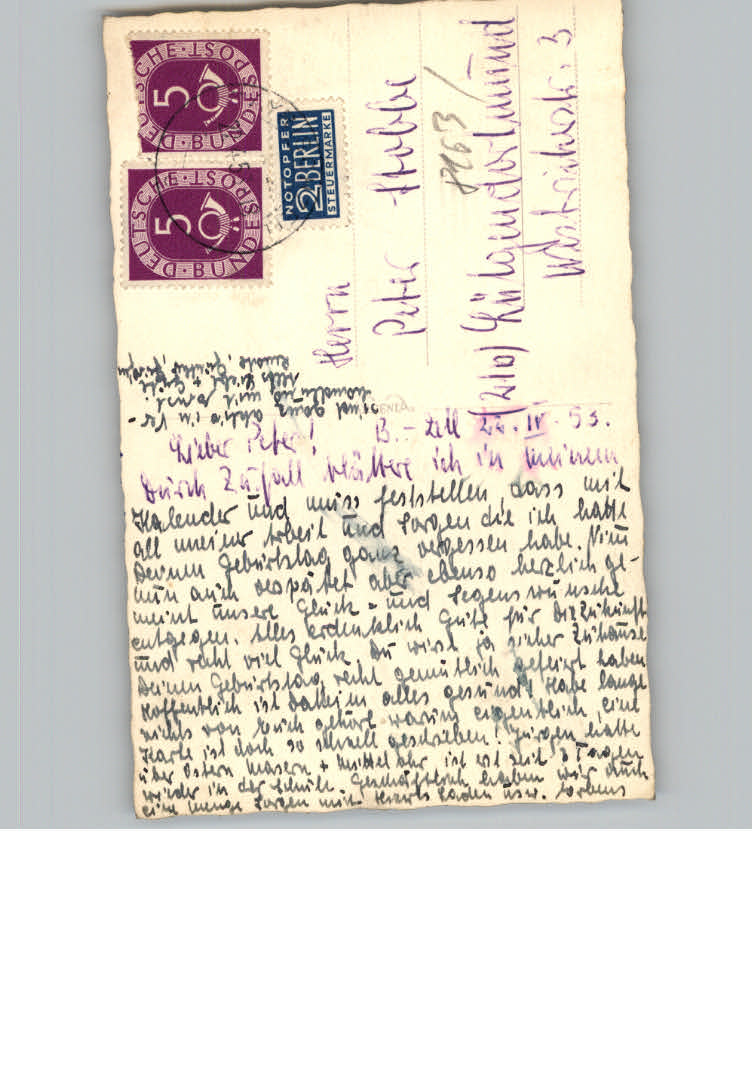 DEUTSCHE BUNDESPOST
5
DEUTSCHE BUNDESPOST
5
NOTOPFER
2 BERLIN
STEUERMARKE
Herrn
Peter Stobbe
8163/
(21b) Lütgendortmund
B.-Zell 22.IV.53.
Lieber Peter!
Durch Zufall blättere ich in meinem
Kalender und muss feststellen, dass mit
all meiner Arbeit und Sorgen die ich hatte
Deinen Geburtstag ganz vergessen habe. Nimm
nun auch verspätet aber ebenso herzlich ge-
meint unsere Glück- und Segenswünsche
entgegen. Alles erdenklich Gute für die Zukunft
und recht viel Glück. Du wirst ja sicher Zuhause
Deinen Geburtstag recht gemütlich gefeiert haben
Hoffentlich ist daheim alles gesund! Habe lange
nichts von Euch gehört warum eigentlich, eine
Karte ist doch so schnell geschrieben! Jürgen hatte
über Ostern Masern + Mittelohr, ist erst seit 3 Tagen
wieder in der Schule. Geschäftlich haben wir auch
eine menge Sorgen mit Laden usw.
sind ganz